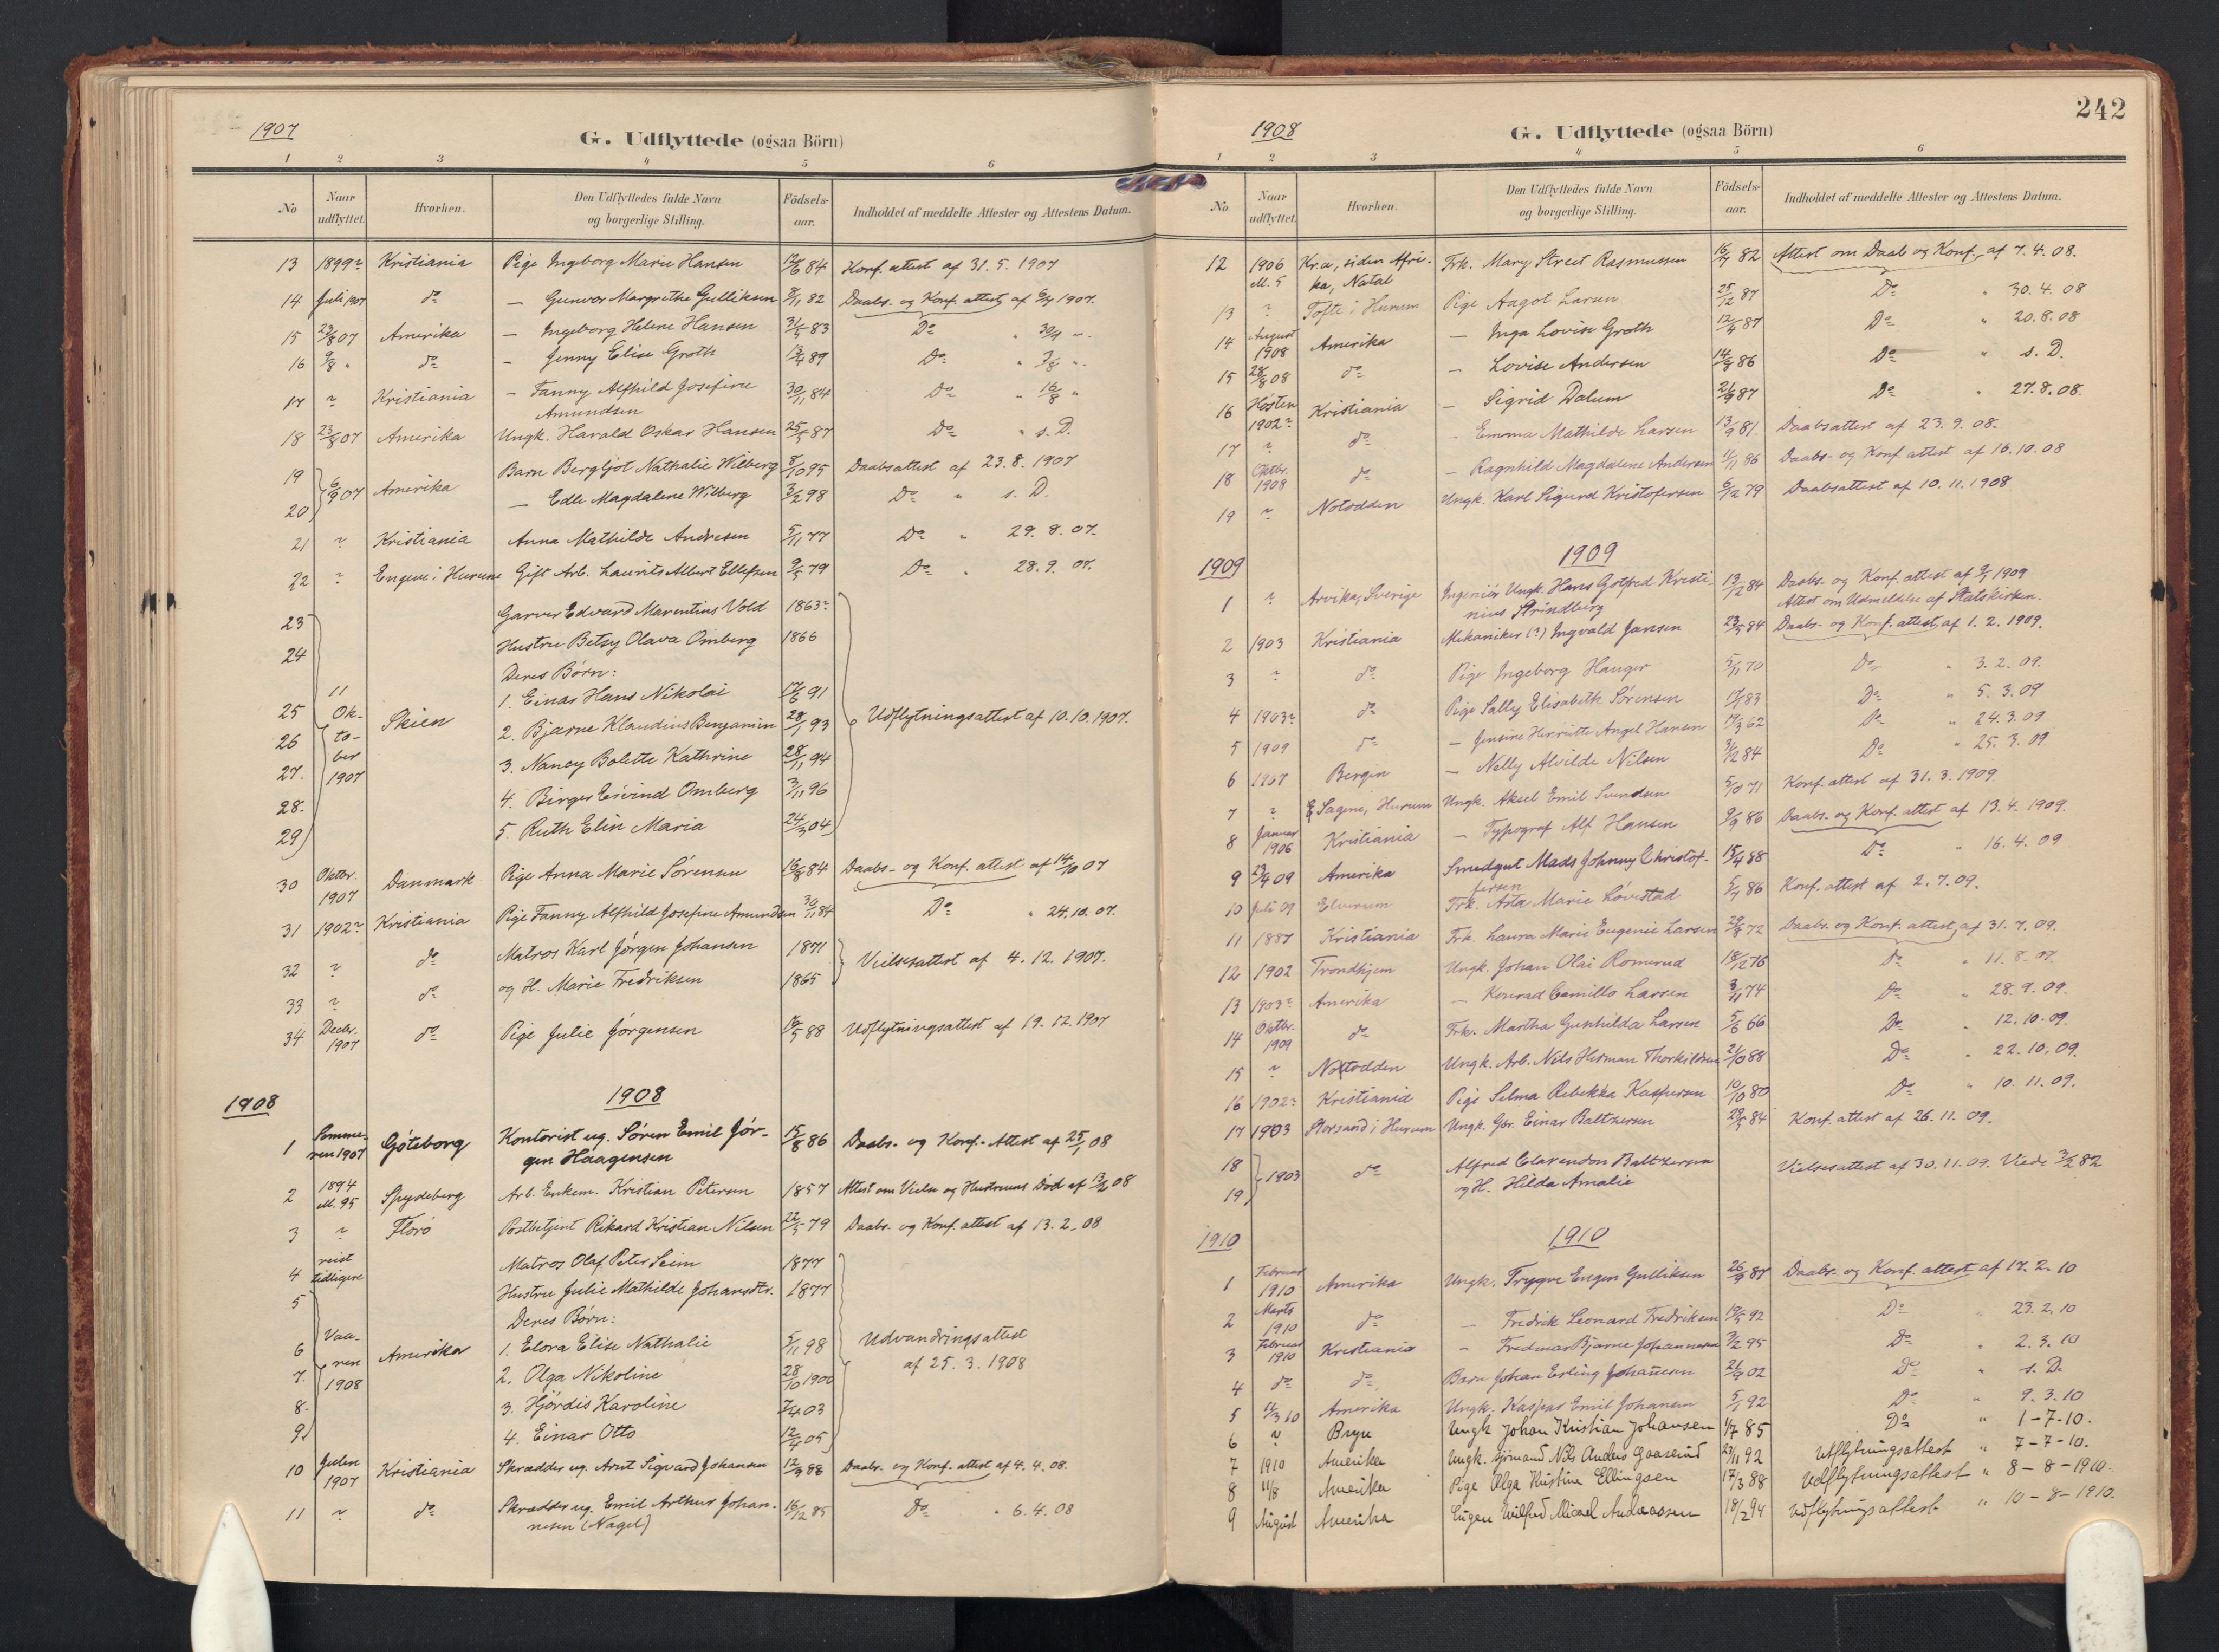 1907
G. Udflyttede (ogsaa Börn)
1 2 3 4 5 6
No Naar udflyttet. Hvorhen. Den Udflyttedes fulde Navn og borgerlige Stilling. Födsels-aar. Indholdet af meddelte Attester og Attestens Datum.
13 1899? Kristiania Pige Ingeborg Marie Hansen 84 Konf. attest af 31. 5. 1907
14 Juli 1907 do — Gunvor Margrethe Gulliksen 8/11 82 Daabs- og Konf. attest af 6/7 1907.
15 23/8 07 Amerika — Ingeborg Helene Hansen 31/5 83 Do " 30/7 –.
16 9/8 " do — Jenny Elise Groth 89 Do " 7/8 –.
17 ? Kristiania — Fanny Alfhild Josefine 30/11 84 Do " 16/8 "
Amundsen
18 23/8 07 Amerika Ungk. Harald Oskar Hansen 25/5 87 Do " s. D.
19 Barn Bergljot Nathalie Wilberg 8/10 95 Daabsattest af 23. 8. 1907
6/9 07 Amerika
20 — Edle Magdalene Wilberg 3/2 98 Do " s. D.
21 ? Kristiania Anna Mathilde Andresen 5/11 77 Do " 29. 8. 07.
22 ? Engene i Hurum Gift Arb. Laurits Albert Ellefsen 9/5 79 Do " 28. 9. 07.
23 Garver Edvard Marentius Vold 1863?
24 Hustru Betsy Olava Omberg 1866
Deres Børn:
25 11 Ok- Skien 1. Einar Hans Nikolai 91 Udflytningsattest af 10. 10. 1907.
26 to- 2. Bjarne Klaudius Benjamin 28/1 93
27. ber 3. Nancy Bolette Kathrine 28/11 94
28. 1907 4. Birger Eivind Omberg 3/11 96
29 5. Ruth Elin Maria 24/3 04
30 Oktbr. 1907 Danmark Pige Anna Marie Sørensen 16/8 84 Daabs- og Konf. attest af 14/10 07
31 1902? Kristiania Pige Fanny Alfhild Josefine Amundsen 30/11 84 Do " 24. 10. 07.
32 ? do Matros Karl Jørgen Johansen 1871 Vielsesattest af 4. 12. 1907.
33 ? do og H. Marie Fredriksen 1865
34 Decbr. 1907 do Pige Julie Jørgensen 88 Udflytningsattest af 19. 12. 1907
1908 1908
1 Sommeren 1907 Göteborg Kontorist ug. Søren Emil Jør- 15/8 86 Daabs- og Konf.- Attest af 25/1 08
gen Haagensen
2 1894 el. 95 Spydeberg Arb. Enkem. Kristian Petersen 1857 Attest om Vielse og Hustruens Død af 08
3 ? Florö Postbetjent Rikard Kristian Nilsen 22/5 79 Daabs- og Konf. attest af 13. 2. 08
4 reist tidligere Matros Olaf Peter Seim 1877
5 Hustru Julie Mathilde Johansdtr. 1877
Deres Børn:
6 Vaa- Amerika 1. Elora Elise Nathalie 5/11 98 Udvandringsattest
7. ren 2. Olga Nikoline 28/10 1900 af 25. 3. 1908
8. 1908 3. Hjørdis Karoline 7/4 03
9 4. Einar Otto 12/4 05
10 Julen 1907 Kristiania Skrædder ug. Arnt Sigvard Johansen 12/9 88 Daabs- og Konf. attest af 4. 4. 08.
11 ? do Skrædder ug. Emil Arthur Johan- 16/12 85 Do " 6. 4. 08
nesen (Nagel)
242
1908
G. Udflyttede (ogsaa Börn)
1 2 3 4 5 6
No Naar udflyttet. Hvorhen. Den Udflyttedes fulde Navn og borgerlige Stilling. Födsels-aar. Indholdet af meddelte Attester og Attestens Datum.
12 1906 el. 5 Kr.a, siden Afri- Frk. Mary Street Rasmussen 82 Attest om Daab og Konf. af 7. 4. 08.
ka, Natal
13 ? Tofte i Hurum Pige Aagot Larsen 25/12 87 Do " 30. 4. 08
14 August 1908 Amerika — Inga Lovise Groth 12/4 87 Do " 20. 8. 08
15 28/8 08 do — Lovise Andersen 14/8 86 Do " s. D.
16 Høsten 1902? Kristiania — Sigrid Dalum 87 Do " 27. 8. 08.
17 ? do — Emma Mathilde Larsen 13/9 81. Daabsattest af 23. 9. 08.
18 Oktbr. 1908 do — Ragnhild Magdalene Andersen 86 Daabs- og Konf attest af 16. 10. 08
19 ? Notodden Ungk. Karl Sigurd Kristofersen 6/12 79 Daabsattest af 10. 11. 1908
1909 1909
1 ? Arvika, Sverige Ingeniør Ungk. Hans Gotfred Kristi- 13/12 84 Daabs- og Konf. attest af 9/1 1909
nius Strindberg Attest om Udmeldelse af Statskirken.
2 1903 Kristiania Mekaniker (?) Ingvald Jansen 23/5 84 Daabs- og Konf. attest af 1. 2. 1909.
3 ? do Pige Ingeborg Hauger 70 Do " 3. 2. 09.
4 1903? do Pige Sally Elisabeth Sørensen 83 Do " 5. 3. 09
5 1909 do — Jensine Henriette Angel Hansen 62 Do " 24. 3. 09
6 1907 Bergen — Nelly Alvilde Nilsen 84 Do " 25. 3. 09.
7 ? Sagene, Hurum Ungk. Aksel Emil Svendsen 5/10 71 Konf. attest af 31. 3. 1909
8 Januar 1906 Kristiania — Typograf Alf Hansen 9/9 86 Daabs- og Konf. attest af 13. 4. 1909.
9 23/4 09 Amerika Smedgut Mads Johnny Christof- 15/4 88 Do " 16. 4. 09
fersen
10 Juli 09 Elverum Frk. Asta Marie Løvestad 86 Konf. attest af 2. 7. 09.
11 1887 Kristiania Frk. Laura Marie Eugenie Larsen 29/8 72 Daabs- og Konf. attest af 31. 7. 09.
12 1902 Trondhjem Ungk. Johan Olai Romerud 18/12 76 Do " 11. 8. 09.
13 1903? Amerika — Konrad Camillo Larsen 3/11 74 Do " 28. 9. 09.
14 Oktbr. 1909 do Frk. Martha Gunhilda Larsen 5/6 66 Do " 12. 10. 09.
15 ? Notodden Ungk. Arb. Nils Herman Thorkildsen 21/10 88 Do " 22. 10. 09.
16 1902? Kristiania Pige Selma Rebekka Kaspersen 10/10 80 Do " 10. 11. 09.
17 1903 Storsand i Hurum Ungk. Gbr. Einar Baltzersen 28/5 84 Konf. attest af 26. 11. 09.
18 1903 do Alfred Clarendon Baltzersen Vielsesattest af 30. 11. 09. Viede 3/2 82
19 og H. Hilda Amalie
1910 1910
1 Februar 1910 Amerika Ungk. Trygve Eugen Gulliksen 26/9 87 Daabs- og Konf. attest af 17. 2. 10
2 Marts 1910 do — Fredrik Leonard Fredriksen 92 Do " 23. 2. 10
3 Februar 1910 Kristiania — Fredmar Bjarne Johannesen 95 Do " 2. 3. 10
4 do do Barn Johan Erling Johannesen 02 Do " s. D.
5 11/3 10 Amerika Ungk. Kaspar Emil Johansen 5/1 92 Do " 9. 3. 10
6 ? Bryn Ungk Johan Kristian Johansen 1/7 85 Do " 1-7-10.
7 1910 Amerika Ungk. sjømand Nils Anders Gaaserud 92 Utflytningsattest " 7-7-10.
8 11/8 Amerika Pige Olga Kristine Ellingsen 17/3 88 Udflytningsattest " 8-8-1910.
9 August Amerika Eugen Wilfred Micael Andreassen 18/2 94 Udflytningsattest " 10-8-1910.